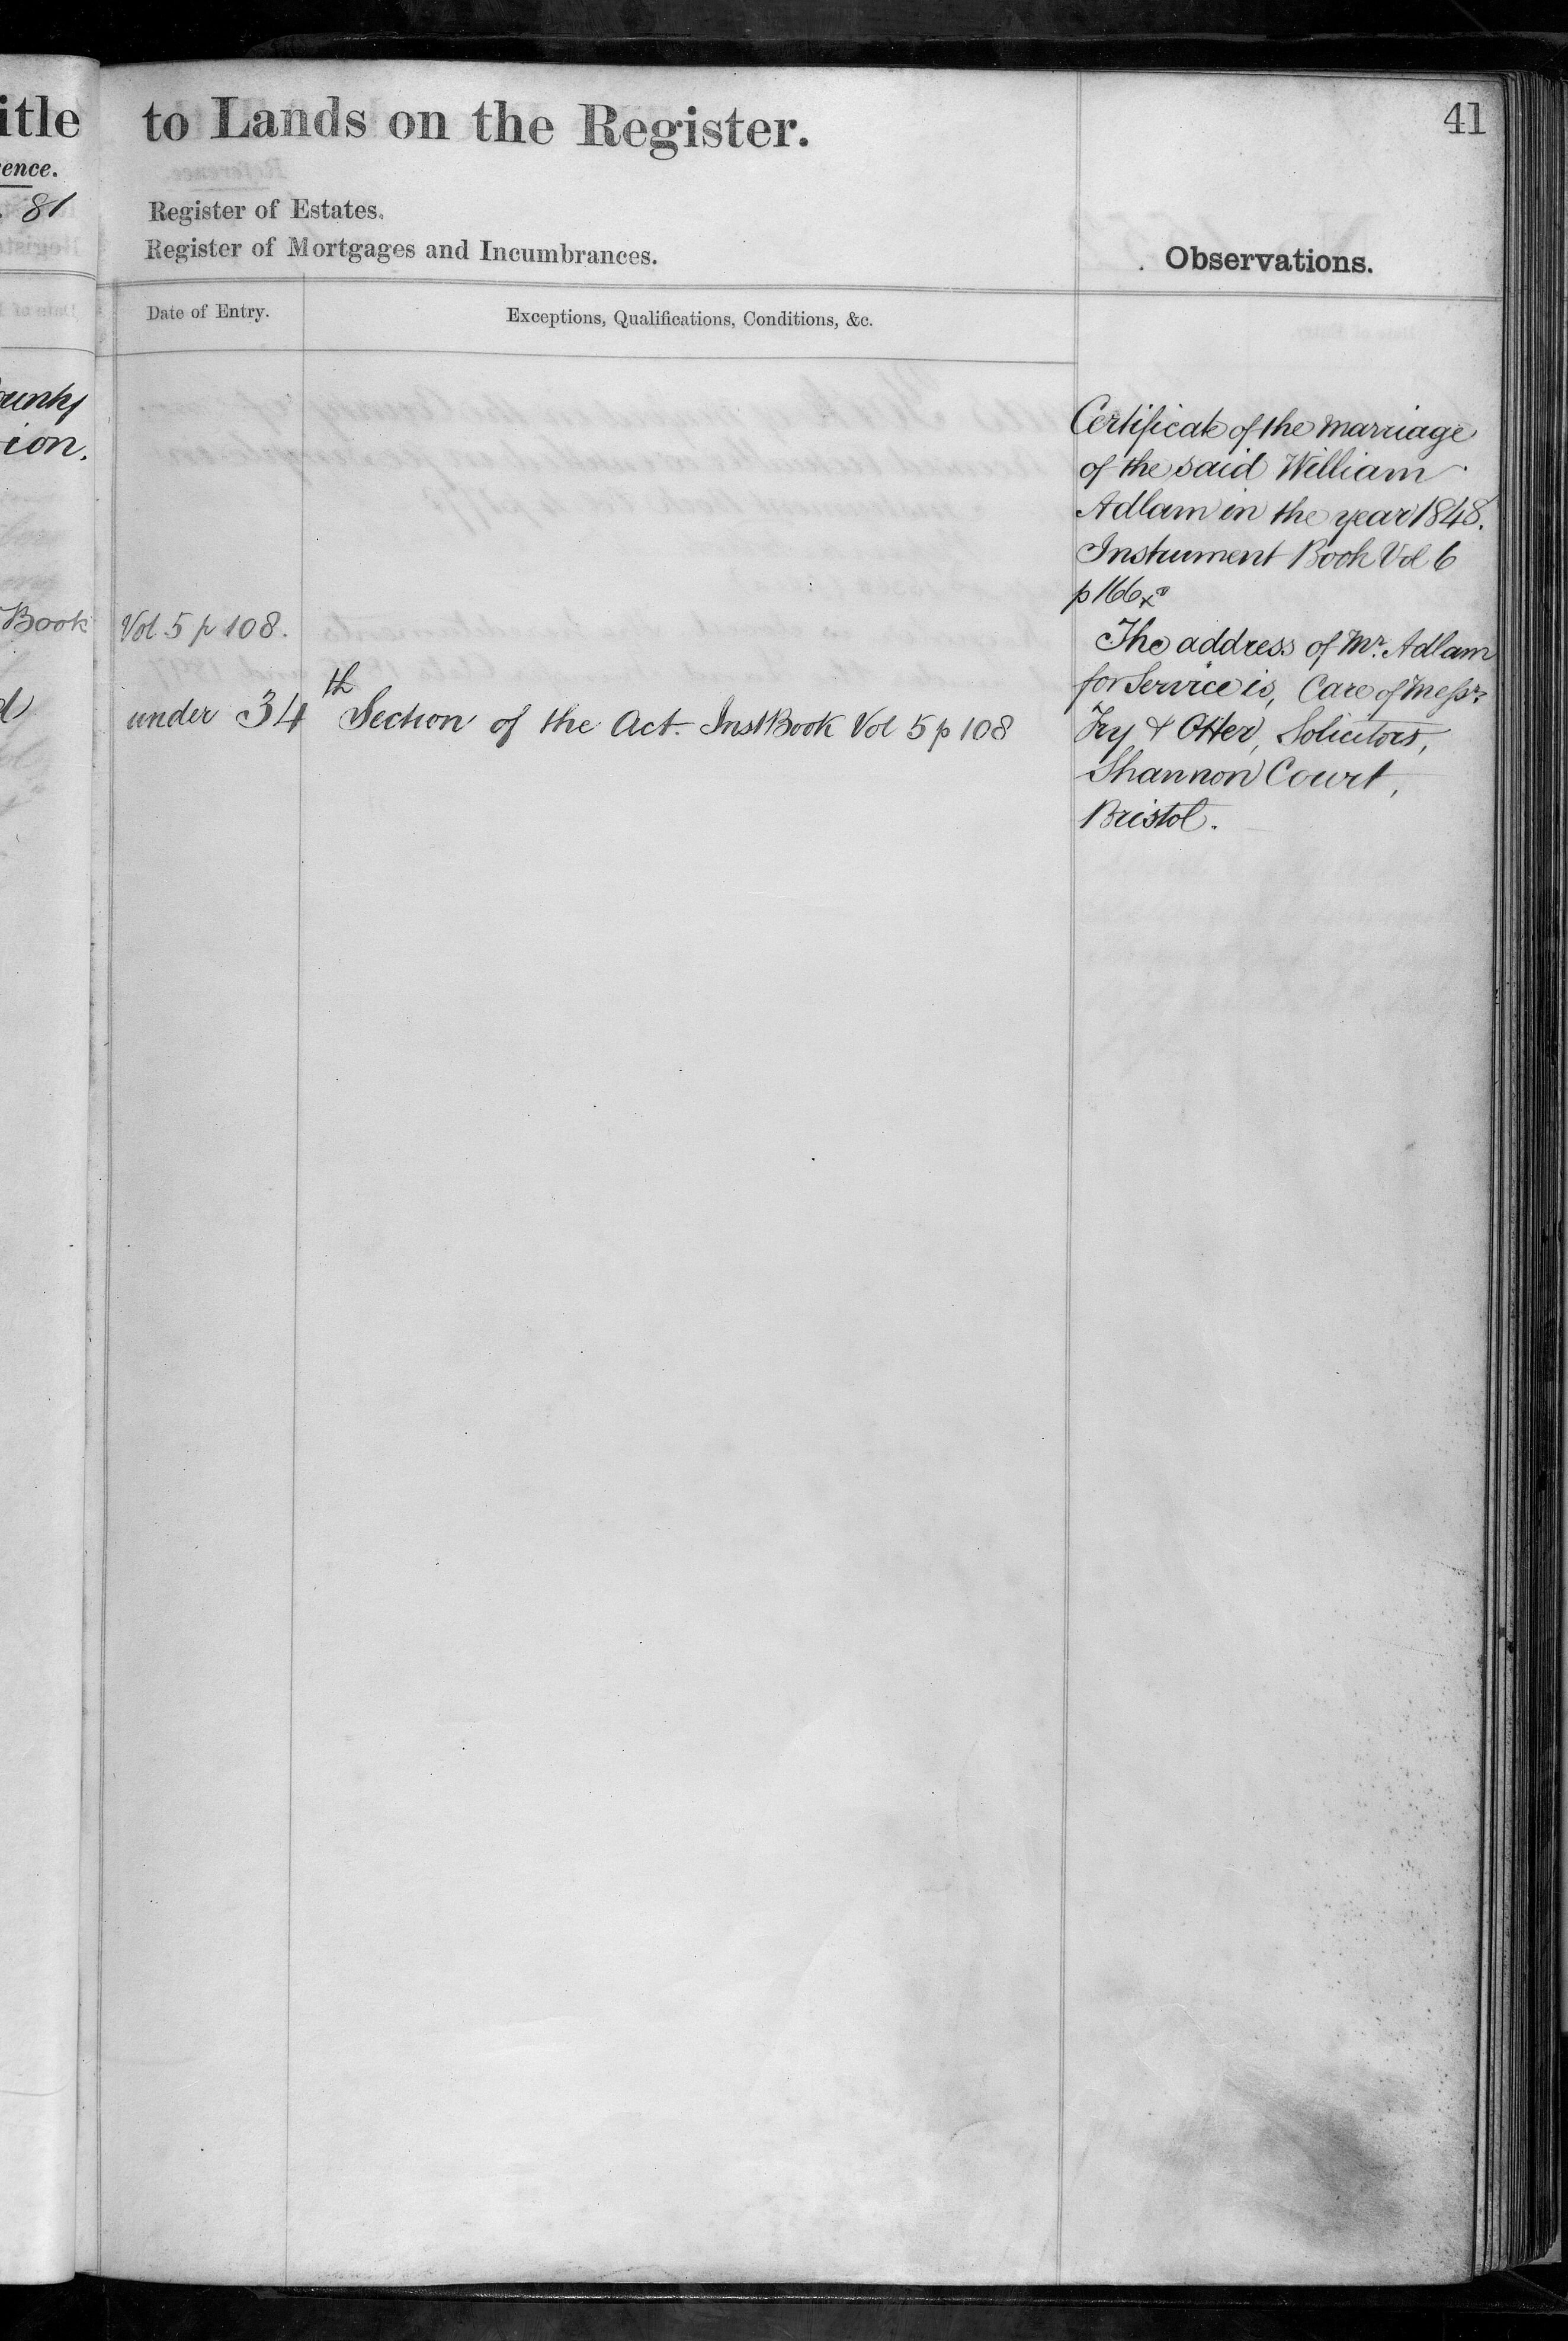 41
to Lands on the Register.
ence.
81
Register of Estates.
Register of Mortgages and Incumbrances.
Observations.
Date of Entry.
Exceptions, Qualifications, Conditions, &c.
ion.
Book
Vol 5 p 108.
under 34th Section of the Act. Inst Book Vol 5 p 108
Certificate of the marriage
of the said William
Adlam in the year 1848.
Instrument Book Vol 6
p 166
The address of Mr. Adlam
for Service is, Care of Messrs.
Fry & Otter, Solicitors,
Shannon Court,
Bristol.